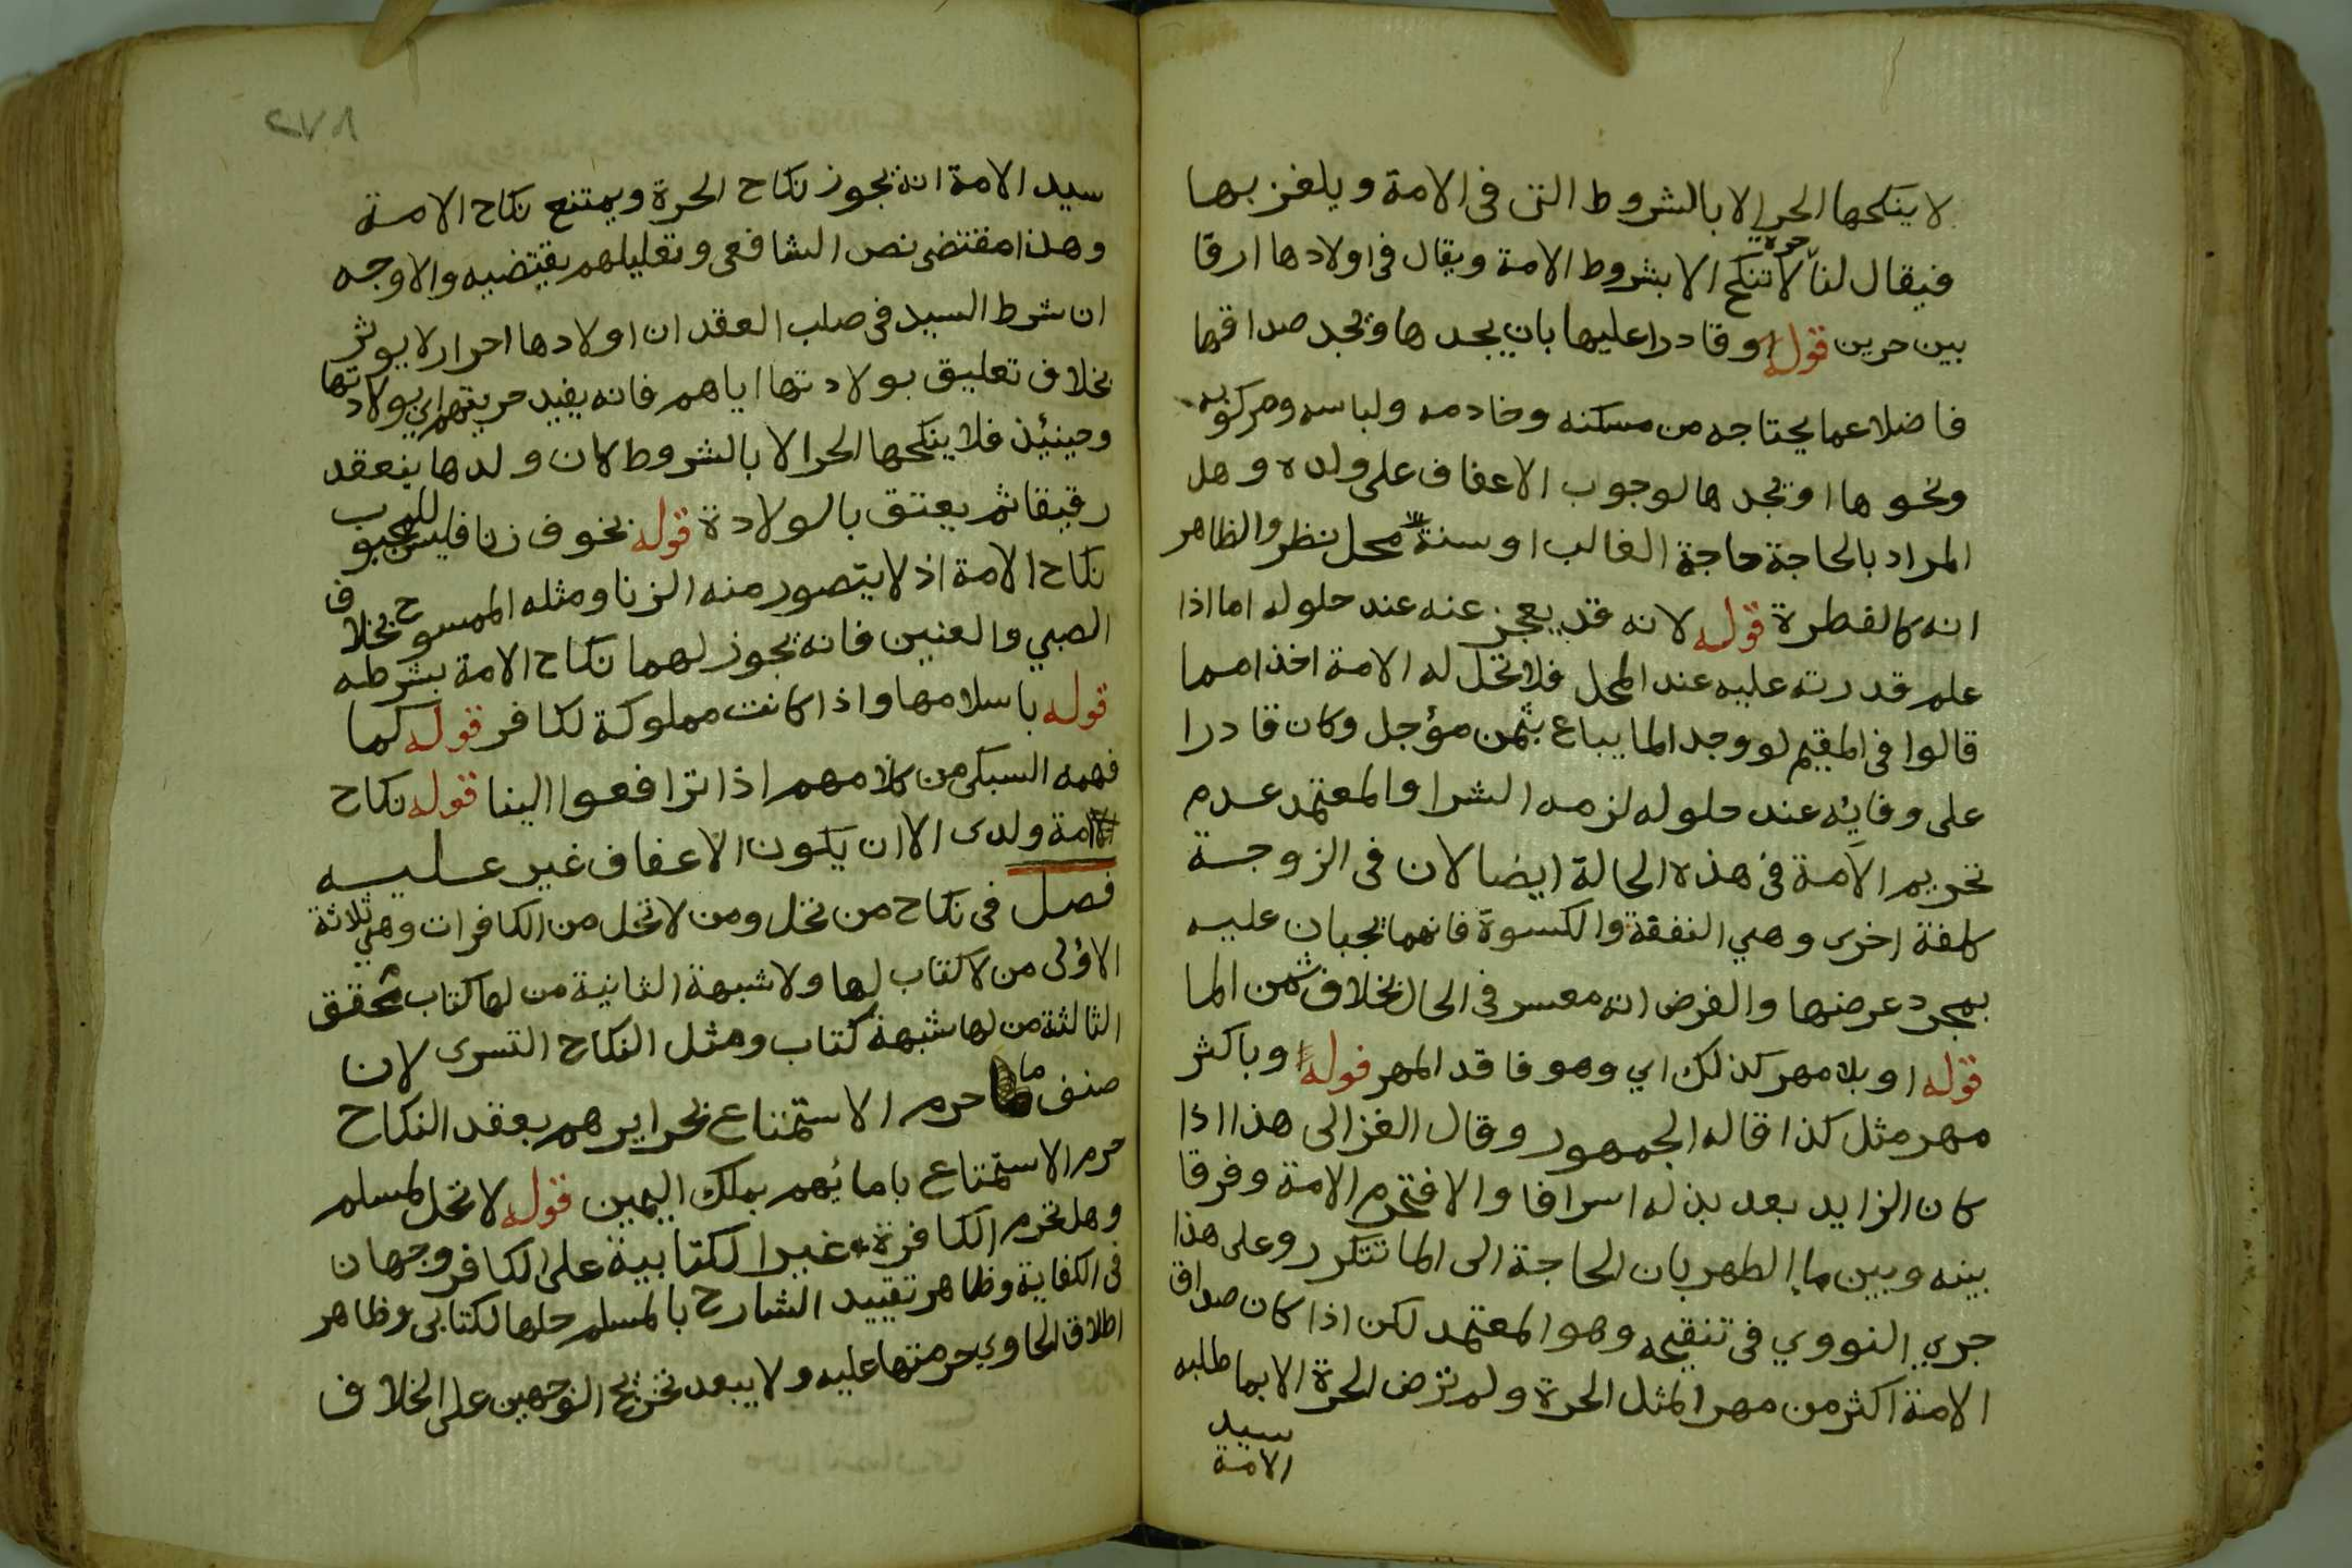 لا ينكحها الحر الا بالشروط التى فى الامة ويلغز بها
فيقال لنا حرة لا تنكح الا بشروط الامة ويقال فى اولادها ارقا
بين حرين قوله وقادرا عليها بان يجدها ويجد صداقها
فاضلا عما يحتاجه من مسكنه وخادمه ولباسه ومركوبه
ونحوها او يجدها لوجوب الاعفاف على ولده وهل
المراد بالحاجة حاجة الغالب او سنة محل نظر والظاهر
انه كالفطرة قوله لانه قد يعجز عنه عند حلوله اما اذا
علم قدرته عليه عند المحل فلا تحل له الامة اخذا مما
قالوا فى المقيم لو وجد الما يباع بثمن مؤجل وكان قادرا
على وفايه عند حلوله لزمه الشرا والمعتمد عدم
تحريم الامة فى هذه الحالة ايضا لان فى الزوجة
كلفة اخرى وهي النفقة والكسوة فانهما يجبان عليه
بمجرد عرضها والفرض انه معسر فى الحال بخلاف ثمن الما
قوله او بلا مهر كذلك اي وهو فاقد المهر قوله او باكثر
مهر مثل كذا قاله الجمهور وقال الغزالى هذا اذا
كان الزايد يعد بذله اسرافا والا فتحرم الامة وفرقا
بينه وبين ما الطهر بان الحاجة الى الما تتكرر وعلى هذا
جري النووي فى تنقيحه وهو المعتمد لكن اذا كان صداق
الامة اكثر من مهر المثل الحرة ولم ترض الحرة الا بما طلبه
سيد
الامة
٨٧٢
سيد الامة انه يجوز نكاح الحرة ويمتنع نكاح الامة
وهذا مقتضى نص الشافعى وتعليلهم يقتضيه والاوجه
ان شرط السيد فى صلب العقد ان اولادها احرار لا يوثر
بخلاف تعليق بولادتها اياهم فانه يفيد حريتهم اي بولادتها
وحينئذ فلا ينكحها الحر الا بالشروط لان ولدها ينعقد
رقيقا ثم يعتق بالولادة قوله بخوف زنا فليس للمجبوب
نكاح الامة اذ لا يتصور منه الزنا ومثله الممسوح بخلاف
الصبي والعنين فانه يجوز لهما نكاح الامة بشرطه
قوله باسلامها واذا كانت مملوكة لكافر قوله كما
فهمه السبكى من كلامهم اذا ترافعوا الينا قوله نكاح
امة ولدى الا ان يكون الاعفاف غير عليه
فصل فى نكاح من تحل ومن لا تحل من الكافرات وهي ثلاثة
الاولى من لا كتاب لها ولا شبهة الثانية من لها كتاب محقق
الثالثة من لها شبهة كتاب ومثل النكاح التسرى لان
صنف ما حرم الاستمتاع بحرايرهم بعقد النكاح
حرم الاستمتاع بامائهم بملك اليمين قوله لا تحل لمسلم
وهل تحرم الكافرة غير الكتابية على الكافر وجهان
فى الكفاية وظاهر تقييد الشارح بالمسلم حلها لكتابى وظاهر
اطلاق الحاوي حرمتها عليه ولا يبعد تخريج الوجهين على الخلاف